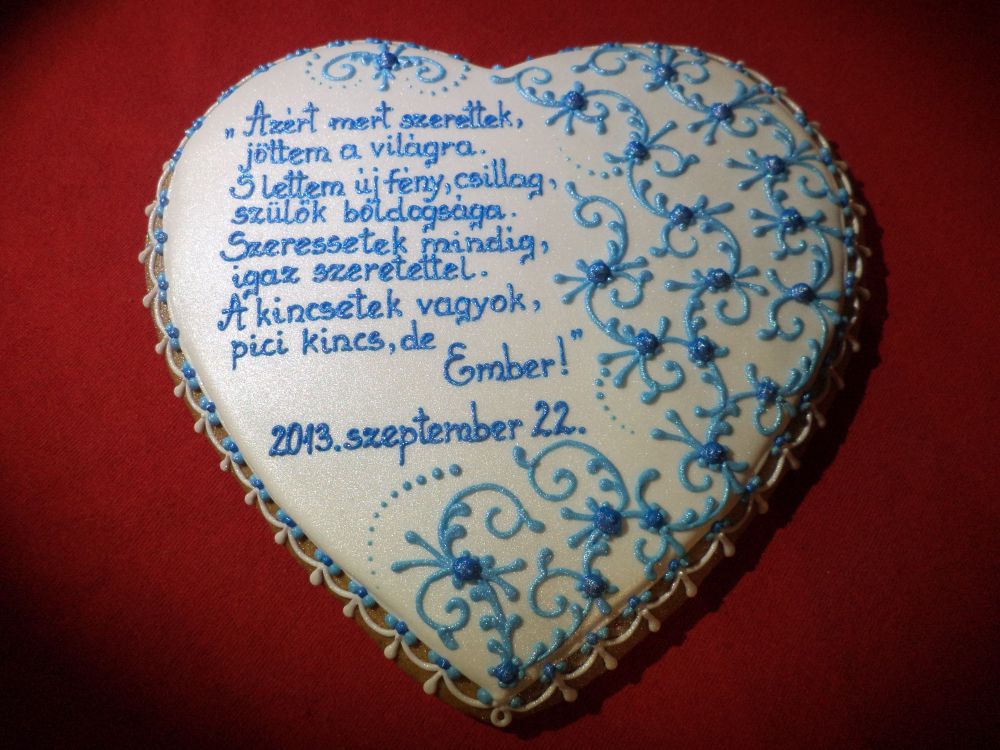 „Azért mert szerettek,
jöttem a világra.
S lettem új fény, csillag,
szülők boldogsága.
Szeressetek mindig,
igaz szeretettel.
A kincsetek vagyok,
pici kincs, de
Ember!"
2013. szeptember 22.